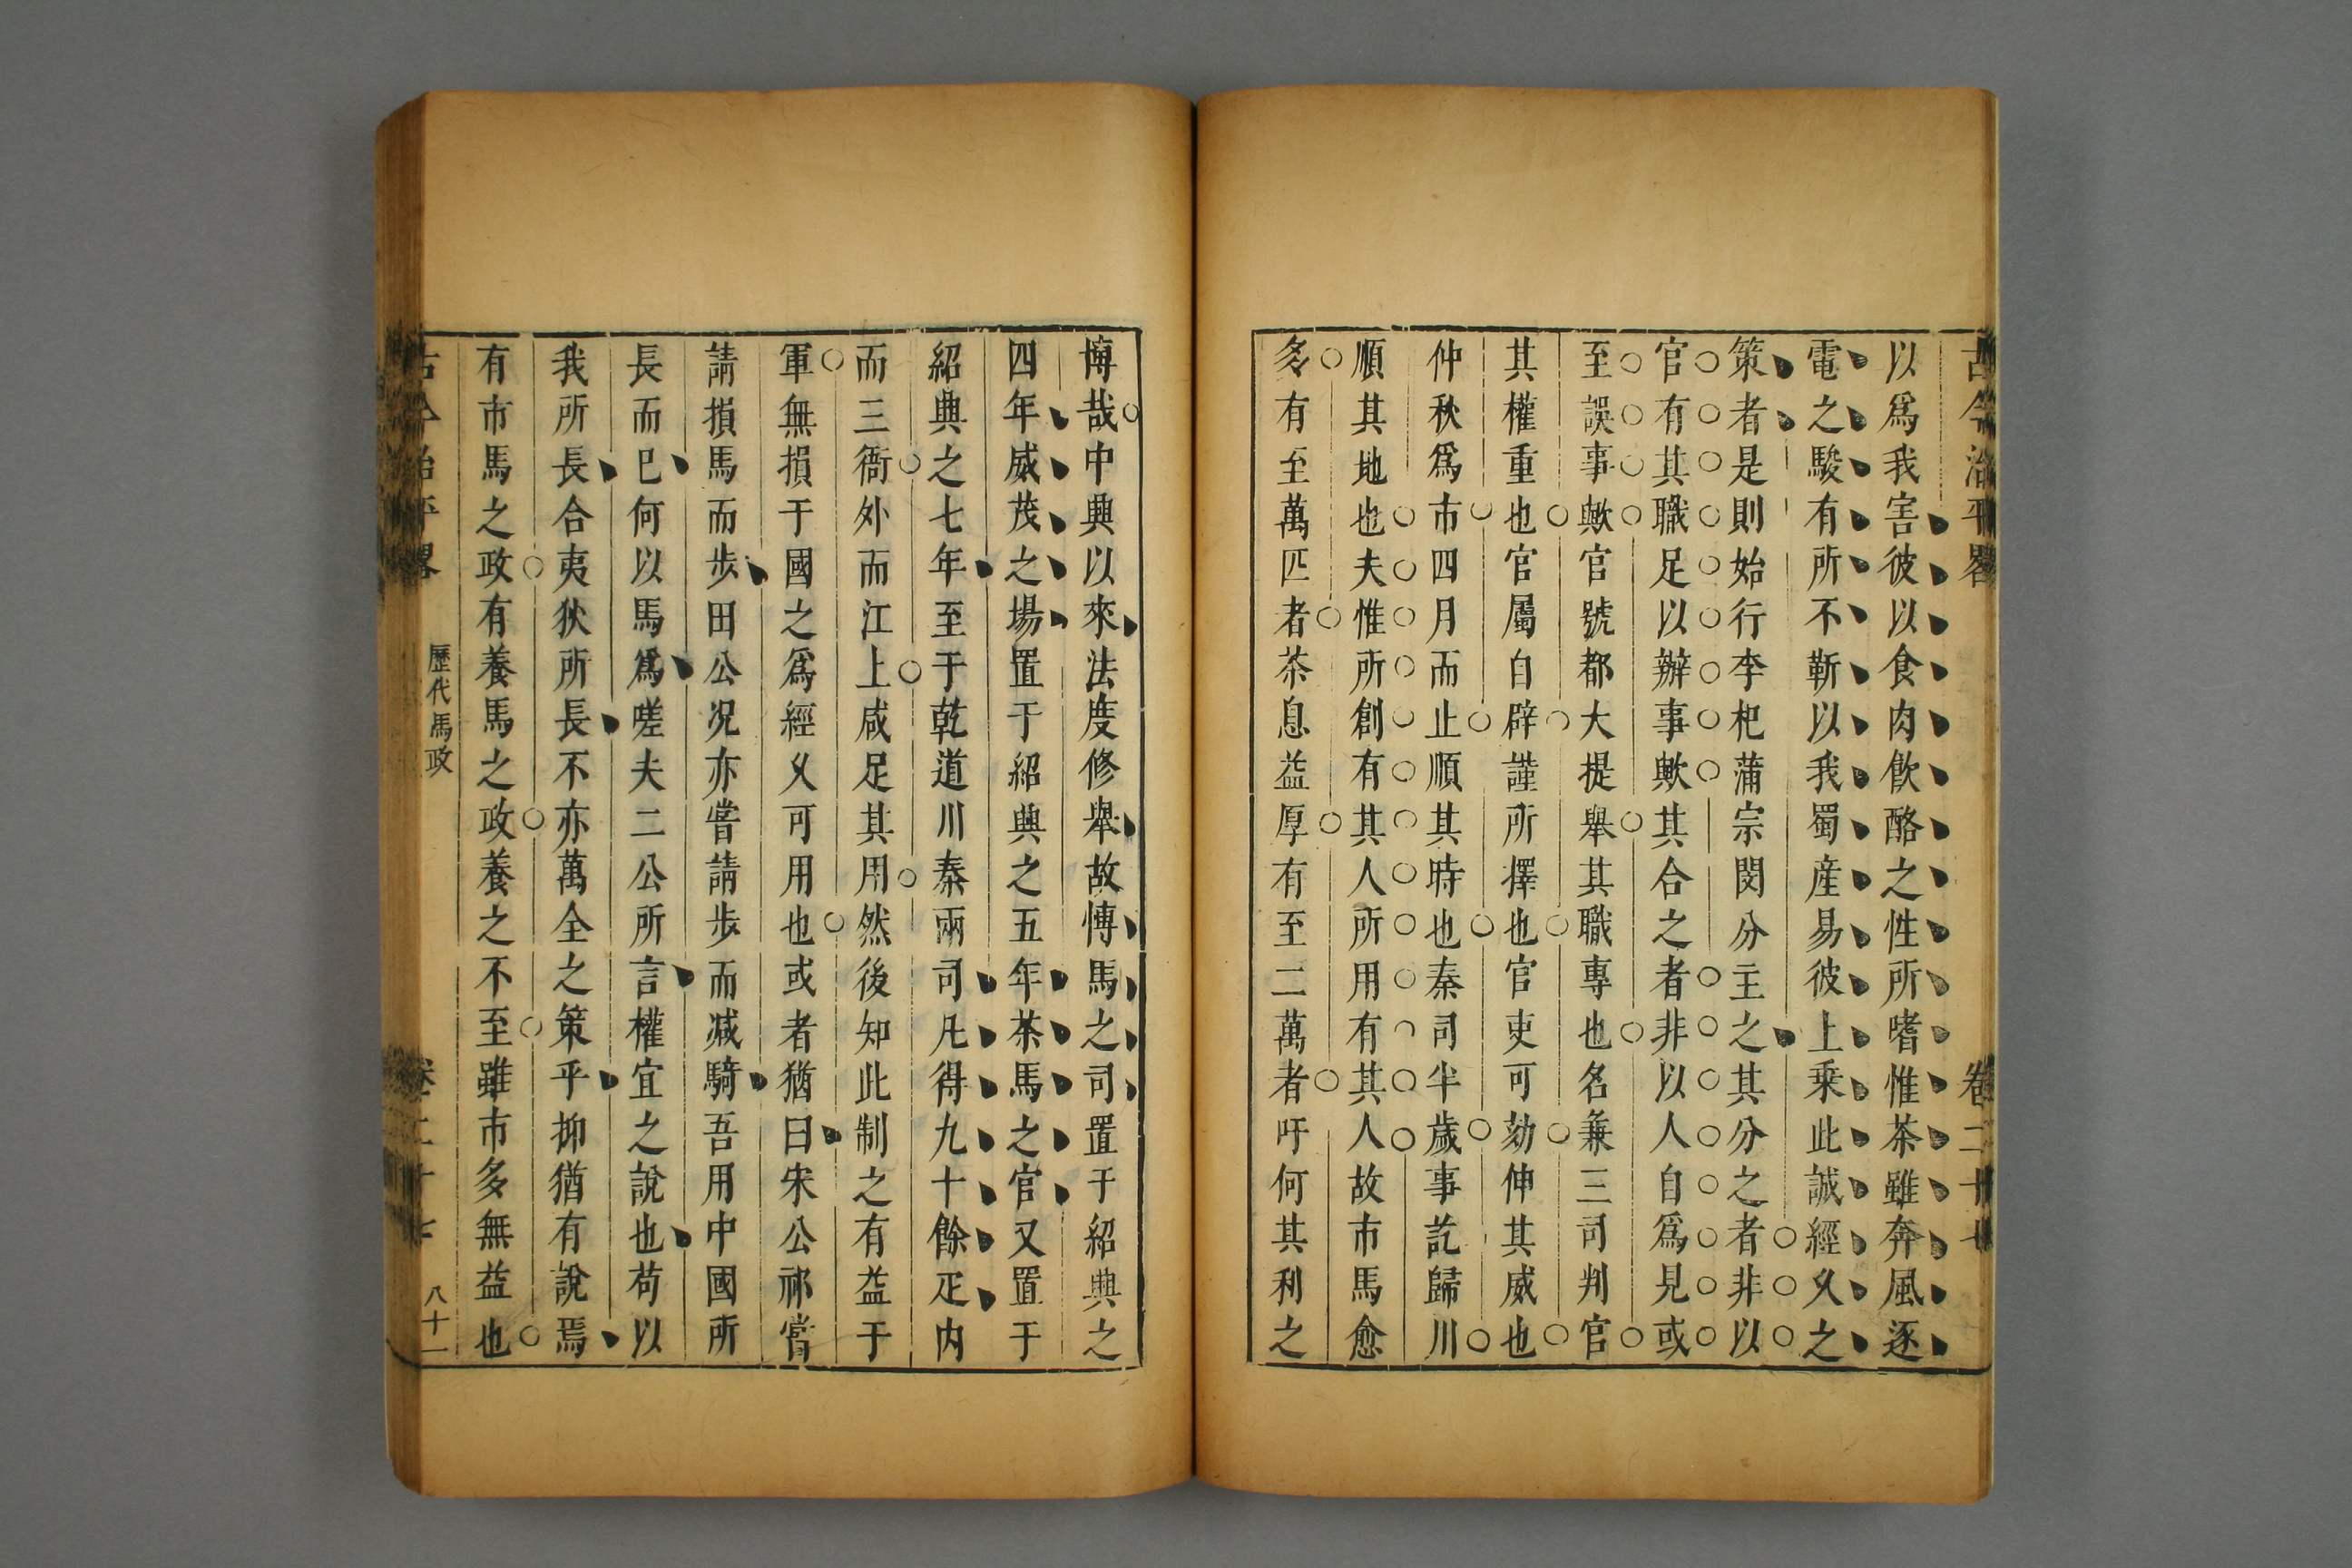 古今治平畧 卷二十七
以爲我害彼以食肉飲酪之性所嗜惟茶雖奔風逐
電之駿有所不靳以我蜀產易彼上乗此誠經乆之
策者是則始行李杞蒲宗閔分主之其分之者非以
官有其職足以辦事歟其合之者非以人自爲見或
至誤事歟官號都大提舉其職專也名兼三司判官
其權重也官屬自辟謹所擇也官吏可劾伸其威也
仲秋爲市四月而止順其時也秦司半歲事訖歸川
順其地也夫惟所創有其人所用有其人故市馬愈
多有至萬匹者茶息益厚有至二萬者吁何其利之
博哉中興以來法度修舉故博馬之司置于紹興之
四年威茂之場置于紹興之五年茶馬之官又置于
紹興之七年至于乾道川秦兩司凡得九十餘疋内
而三衙外而江上咸足其用然後知此制之有益于
軍無損于國之爲經乆可用也或者猶曰宋公祁嘗
請損馬而步田公况亦嘗請步而减騎吾用中國所
長而已何以馬爲嗟夫二公所言權宜之說也苟以
我所長合夷狄所長不亦萬全之策乎抑猶有說焉
有市馬之政有養馬之政養之不至雖市多無益也
古今治平畧 歷代馬政 卷二十七 八十一